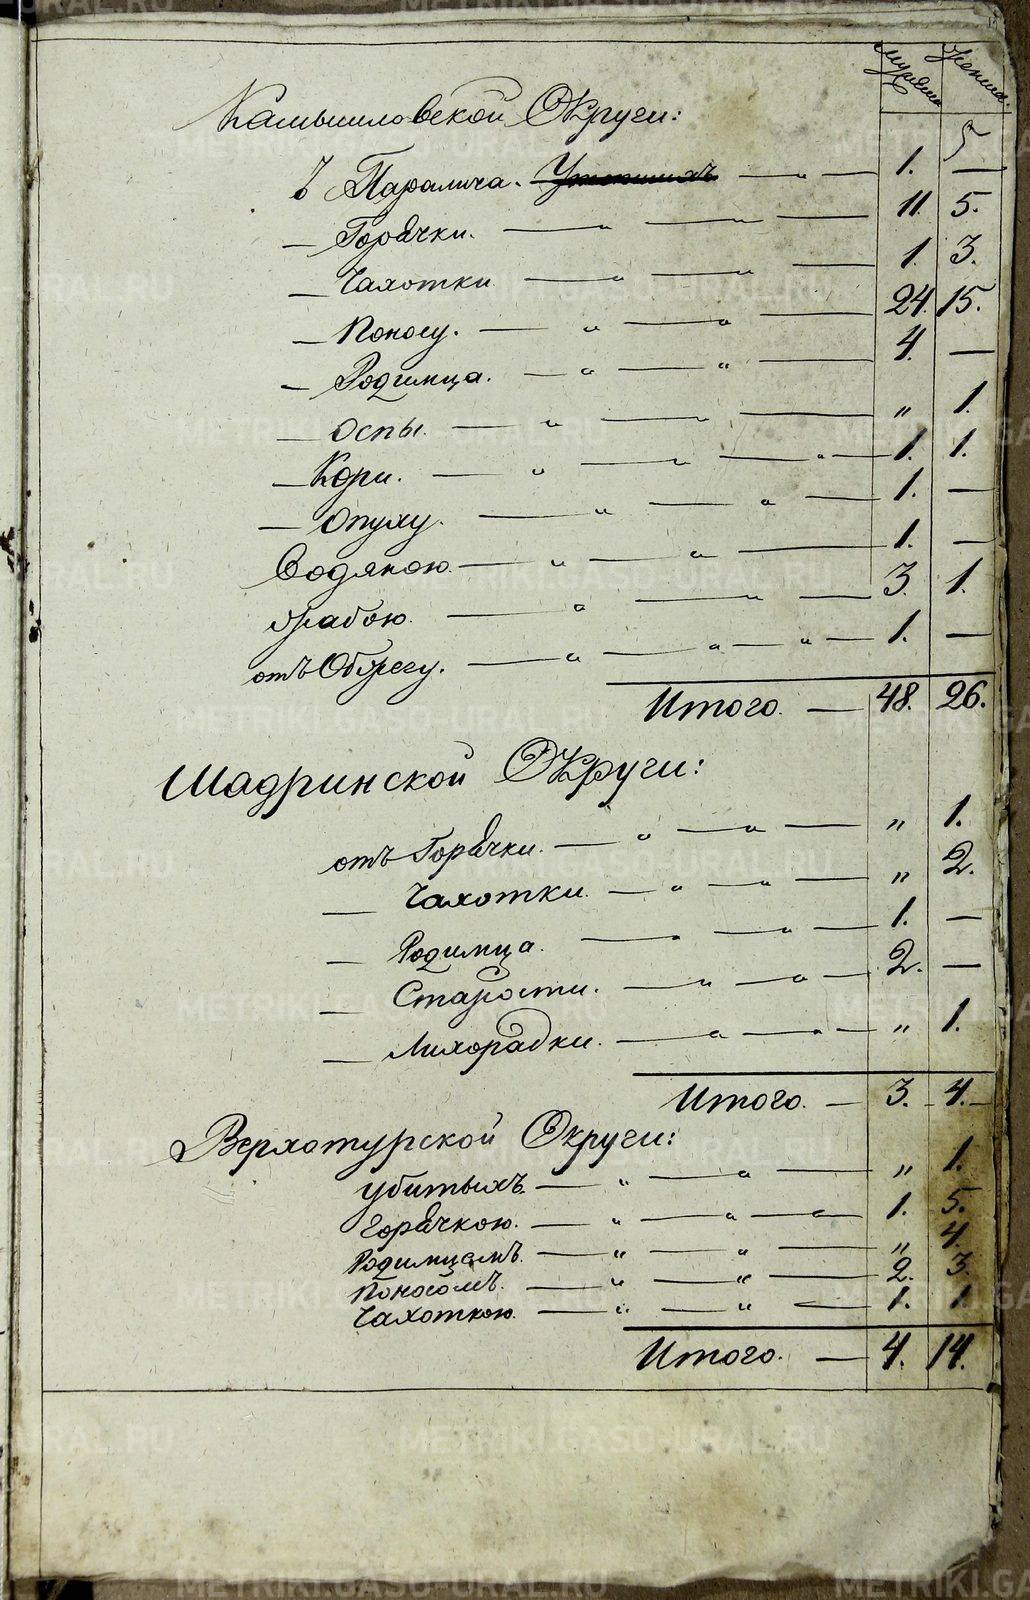 мужеска женска
Камышловской Округи:
5
Паралича. Утопших — „ — 1. —
— Горячки. — „ — „ — 11. 5.
— Чахотки — „ — „ — 1. 3.
— Поносу. — „ — „ — 24. 15.
— Родимца. — „ — „ — 4. —
— Оспы. — „ — „ — „ 1.
— Кори. — „ — „ — „ — 1. 1.
— Опуху. — „ — „ — 1. —
Водяною — „ — „ — 1. —
Грабою. — „ — „ — 3. 1.
отъ — „ — „ — „ — 1. —
Итого. — 48. 26.
Шадринской Округи:
отъ Горячки. — „ — „ — „ 1.
— Чахотки — „ — „ — „ 2.
— Родимца. — „ — „ — 1. —
— Старости. — „ — „ — 2. —
— Лихорадки. — „ — „ — „ 1.
Итого. — 3. 4.
Верхотурской Округи:
убитыхъ. — „ — „ — „ 1.
Горячкою. — „ — „ — „ 1. 5.
Родимцемъ. — „ — „ — „ 4.
Поносомъ. — „ — „ — 2. 3.
Чахоткою. — „ — „ — 1. 1.
Итого. — 4. 14.
METRIKI.GASO-URAL.RU